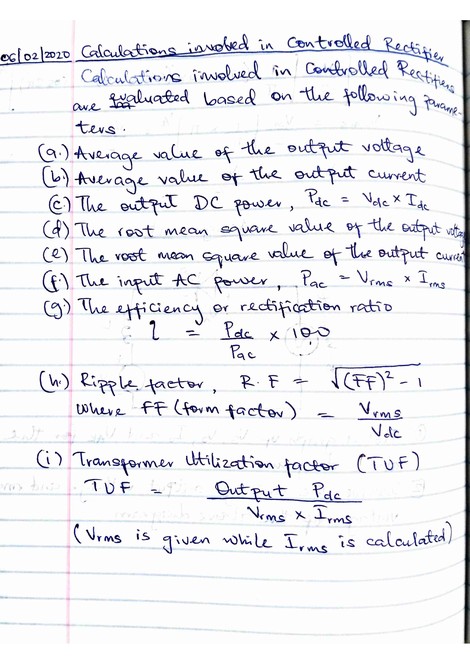 06/02/2020 Calculations involved in Controlled Rectifier
Calculations involved in Controlled Rectifiers
are evaluated based on the following parame-
ters.
(a.) Average value of the output voltage
(b.) Average value of the output current
(c) The output DC power, Pdc = Vdc x Idc
(d) The root mean square value of the output voltage
(e) The root mean square value of the output current
(f.) The input AC power, Pac = Vrms x Irms
(g.) The efficiency or rectification ratio
η = Pdc/Pac x 100
(h.) Ripple factor, R.F = √(FF)² - 1
where FF (form factor) = Vrms/Vdc
(i) Transformer Utilization factor (TUF)
TUF = Output Pdc/Vrms x Irms
(Vrms is given while Irms is calculated)